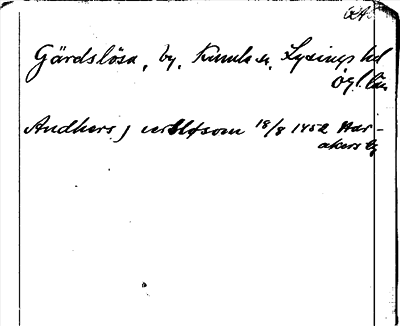 Gärdslösa, by, Kumla sn, Lysings hd
Ög. län
Andhers j 18/8 1452 Har-
akers by